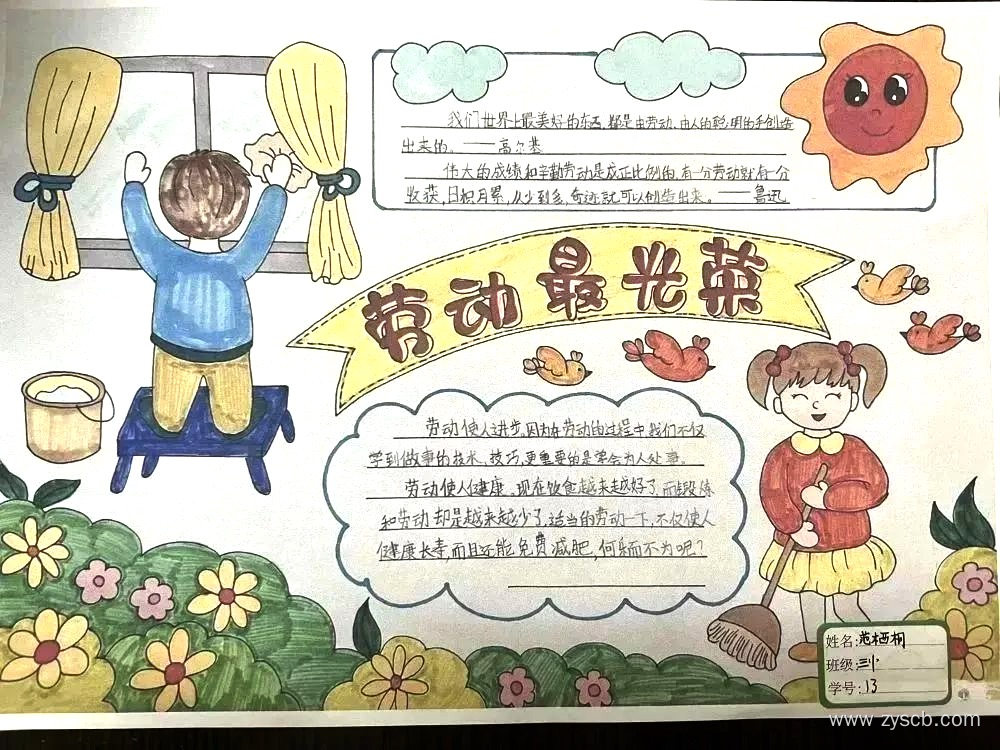 我们世界上最美好的东西,都是由劳动、由人的聪明的手创造
出来的。——高尔基
伟大的成绩和辛勤劳动是成正比例的,有一分劳动就有一分
收获,日积月累,从少到多,奇迹就可以创造出来。——鲁迅
劳动最光荣
劳动使人进步。因为在劳动的过程中我们不仅
学到做事的技术、技巧,更重要的是学会为人处事。
劳动使人健康、现在饮食越来越好了,而锻炼
和劳动却是越来越少了,适当的劳动一下,不仅使人
健康长寿,而且还能免费减肥,何乐而不为呢?
姓名:范栖桐
班级:三
学号:13
www.zyscb.com